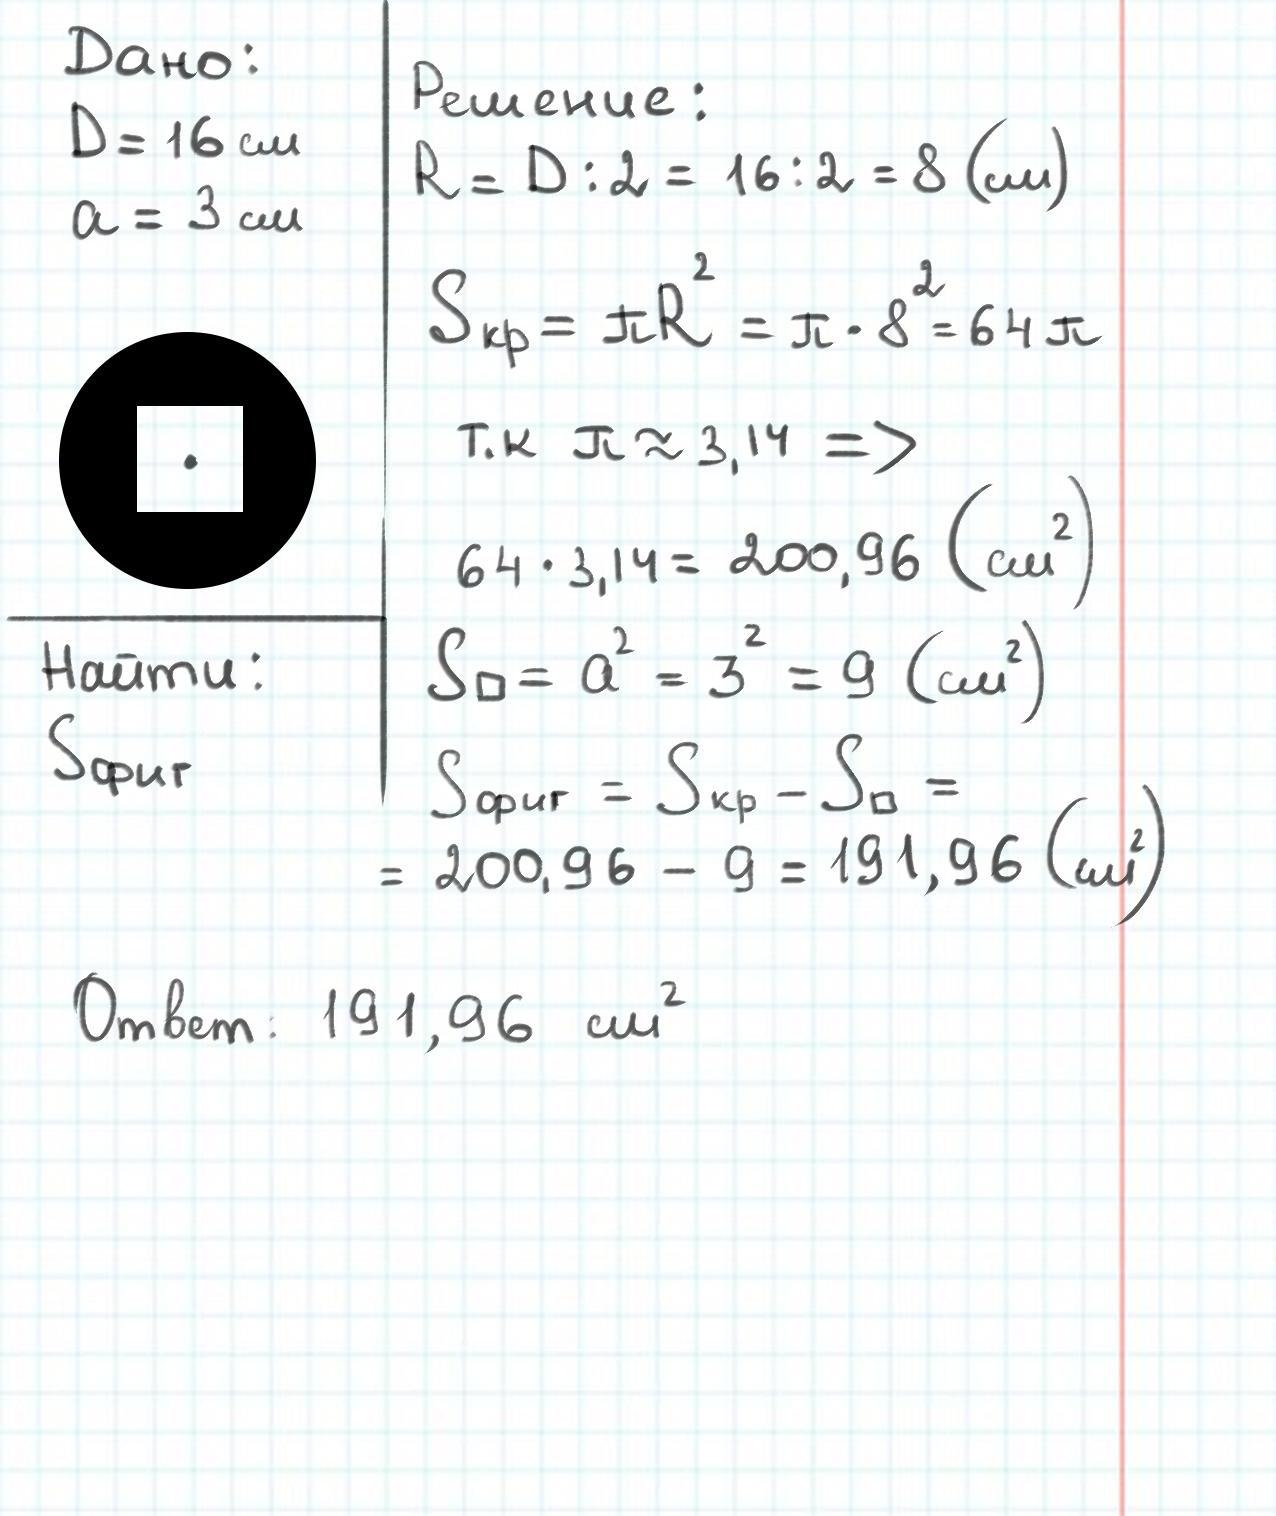 Дано:
D = 16 см
a = 3 см
Найти:
Sфиг
Решение:
R = D : 2 = 16 : 2 = 8 (см)
Sкр = πR² = π · 8² = 64π
т.к π ≈ 3,14 =>
64 · 3,14 = 200,96 (см²)
S□ = a² = 3² = 9 (см²)
Sфиг = Sкр – S□ =
= 200,96 – 9 = 191,96 (см²)
Ответ: 191,96 см²